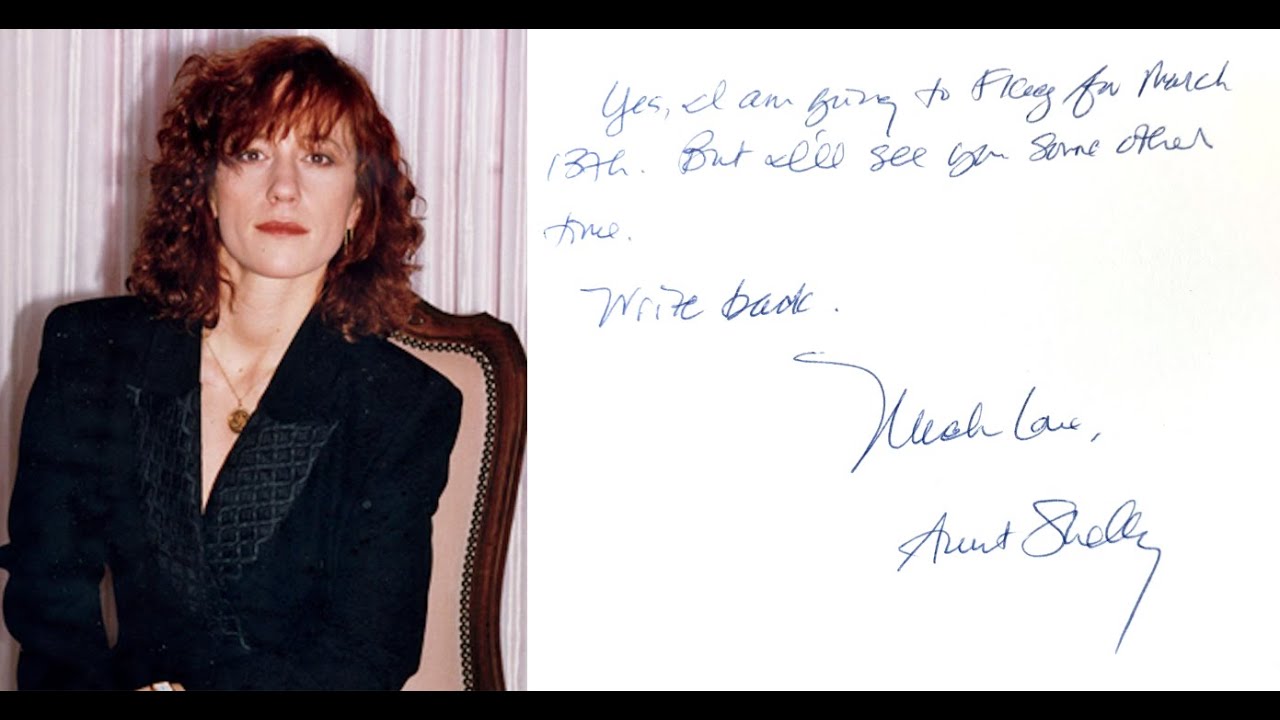 Yes, I am going to Flag for March
13th. But I'll see you some other
time.
Write back.
Much Love,
Aunt Shelly